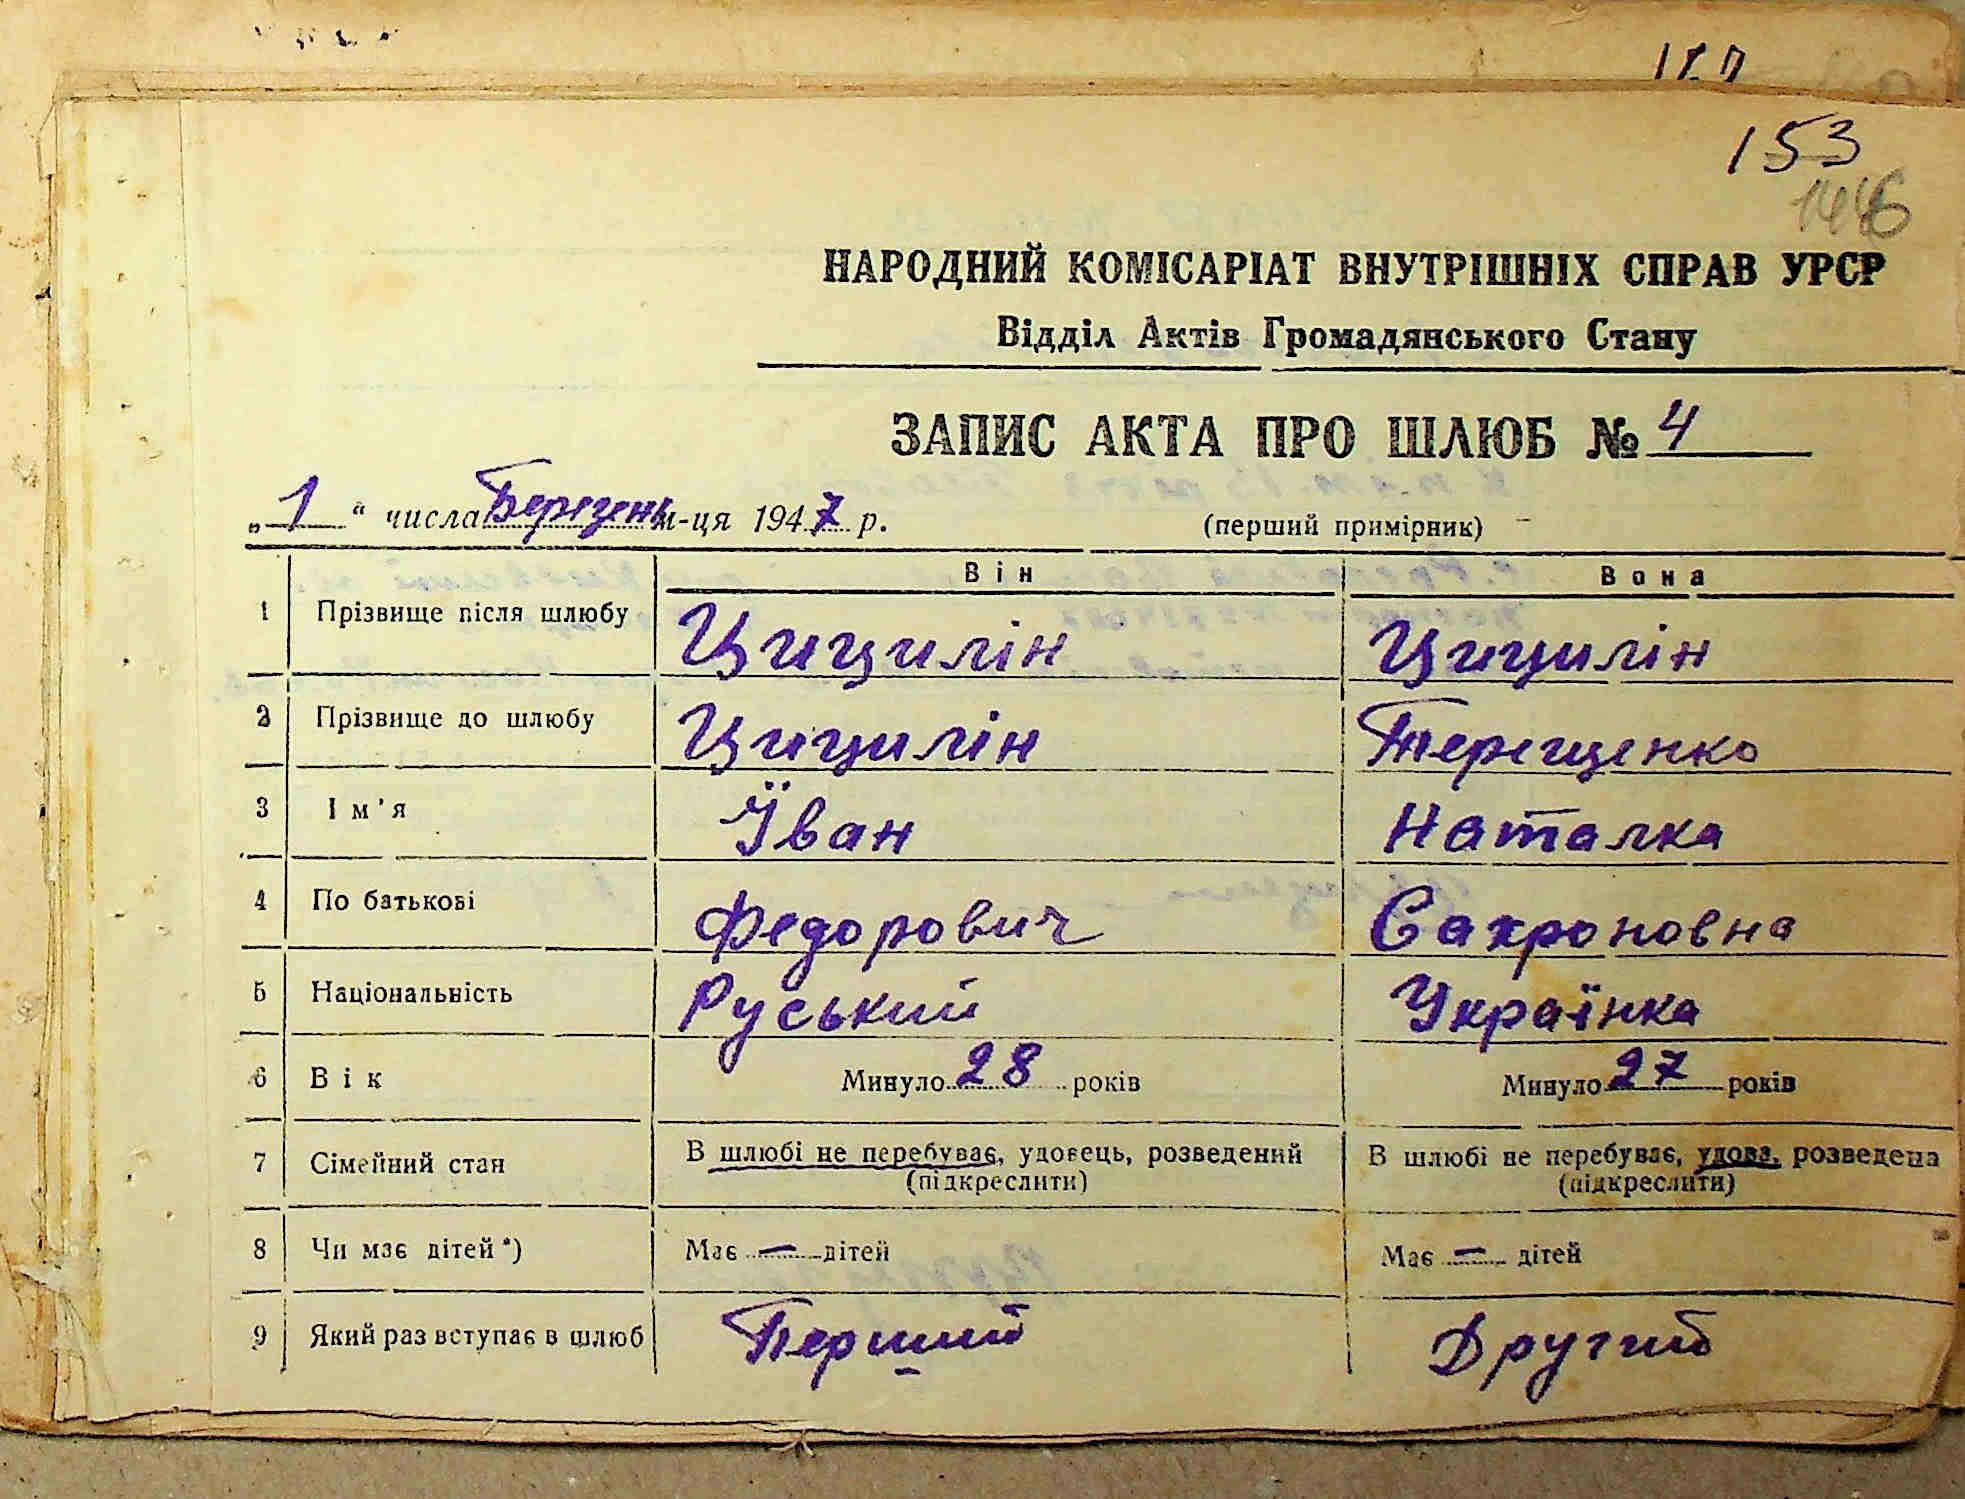 153
146
НАРОДНИЙ КОМІСАРІАТ ВНУТРІШНІХ СПРАВ УРСР
Відділ Актів Громадянського Стану
ЗАПИС АКТА ПРО ШЛЮБ № 4
„ 1 “ числа Березень м-ця 1947 р. (перший примірник)
Він Вона
1 Прізвище після шлюбу Цицилін Цицилін
2 Прізвище до шлюбу Цицилін Терещенко
3 Ім'я Їван Наталка
4 По батькові Федорович Сахроновна
5 Національність Руський Українка
6 Вік Минуло 28 років Минуло 27 років
7 Сімейний стан В шлюбі не перебуває, удовець, розведений В шлюбі не перебуває, удова, розведена
(підкреслити) (підкреслити)
8 Чи має дітей*) Має — дітей Має — дітей
9 Який раз вступає в шлюб Перший Другий